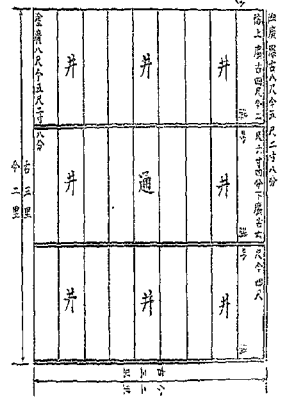 洫廣深古八尺今五尺二寸八分
上廣古四尺今二尺六寸四分下廣古六尺今四尺
井 井 井
井 通 井
井 井 井
廣八尺今五尺二寸八分
古三里
今二里